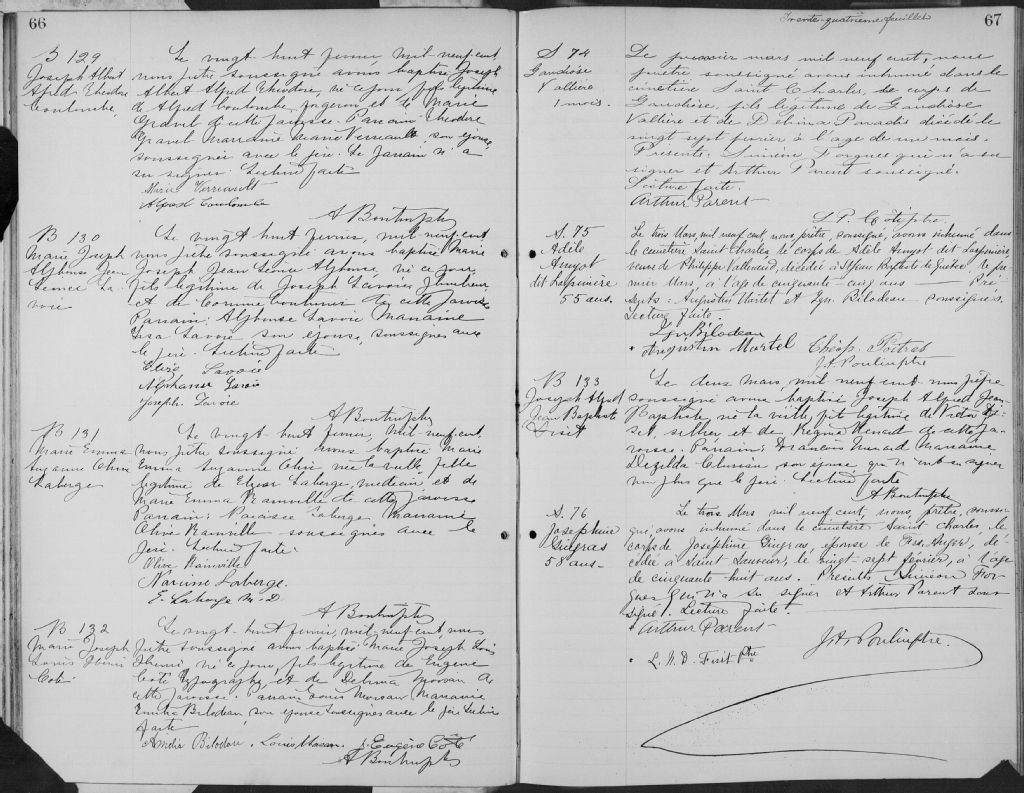 66
B 129
Joseph Albert
Alfrd Theodore
Coulombe
Le vingt huit fevrier mil neuf cent
nous prêtre soussigné avons baptisé Joseph
Albert Alfred Theodore, né ce jour fils légitime
de Alfred Coulombe, et de Marie
Gravel de cette paroisse. Parrain Theodore
Gravel Marraine Marie Verreault son épouse
soussignée avec le père. Le parrain n'a
su signer. Lecture faite
Marie Verreault
Alfred Coulombe
A Bontrupty
B 130
Marie Joseph
Alphonse Jean
La-
voie
Le vingt huit fevrier, mil neuf cent
nous prêtre soussigné avons baptisé Marie
Joseph Jean Alphonse, né ce jour
fils légitime de Joseph Lavoie, plombier
et de Couture de cette paroisse
Parrain: Alphonse Lavoie Marraine
Lavoie son épouse, soussignés avec
le père. Lecture faite
Lavoie
Alphonse Lavoie
Joseph Lavoie
A Bontrupty
B 131
Marie Emma
Suzanne Olive
Laberge
Le vingt huit fevrier, mil neuf cent
nous prêtre soussigné avons baptisé Marie
Emma Suzanne Olive née la veille, fille
légitime de Elzear Laberge, medecin, et de
Marie Emma Rainville de cette paroisse
Parrain: Narcisse Laberge Marraine
Olive Rainville soussignés avec le
père. Lecture faite.
Olive Rainville
Narcisse Laberge.
E. Laberge M.D
A Bontrupty
B 132
Marie Joseph
Louis Henri
Coté
Le vingt-huit fevrier, mil neuf cent, nous
prêtre soussigné avons baptisé Marie Joseph Louis
Henri né ce jour, fils légitime de Eugene
Coté typographe, et de Delima de
cette paroisse. Parrain Louis Marraine
Bilodeau, son épouse soussignés avec le père Lecture
faite
Bilodeau. Louis J. Eugène Côté
A Bontrupty
Trente-quatrième feuillet
67
S 74
Gaudiose
Vallière
1 mois.
Le premier mars mil neuf cent, nous
prêtre soussigné avons inhumé dans le
cimetière Saint Charles, le corps de
Gaudiose, fils légitime de Gaudiose
Vallière et de Delina Paradis décédé le
vingt sept fevrier à l'age de un mois.
Présents, Siméon Forgues qui n'a su
signer et Arthur Parent soussigné.
Lecture faite.
Arthur Parent
L. P. Côté ptre.
S. 75
Adèle
Amyot
dit Larpinière
55 ans.
Le trois Mars, mil neuf cent, nous, prêtre, soussigné, avons inhumé dans
le cimetière Saint Charles le corps de Adèle Amyot dit Larpinière
veuve de Philippe Vallerand, décédée à St Jean Baptiste de Quebec le pre-
mier Mars, à l'age de cinquante-cinq ans Pré-
sents: Augustin Martel et Bilodeau - soussignés.
Lecture faite.
Bilodeau
Augustin Martel Poitras
J. H. Poulin ptre
B 133
Joseph Alfred
Jean Baptiste
Le deux mars, mil neuf cent nous prêtre
soussigné avons baptisé Joseph Alfred Jean-
Baptiste, né la veille, fils légitime de Victor
sellier, et de Regina Menard de cette pa-
roisse. Parrain: Francois Menard Marraine
son épouse qui n'ont su signer
non plus que le père. Lecture faite
A Bontrupty
S. 76
Joséphine
Gingras
58 ans-
Le trois Mars mil neuf cent, nous, prêtre, soussi-
gné, avons inhumé dans le cimetière Saint Charles, le
corps de Joséphine Gingras, épouse de Frs. Auger, dé-
cédée à Saint Sauveur, le vingt-sept février, à l'age
de cinquante huit ans. Présents Simeon For-
gues qui n'a su signer et Arthur Parent sous-
signé. Lecture faite
Arthur Parent
J. H. Poulin ptre.